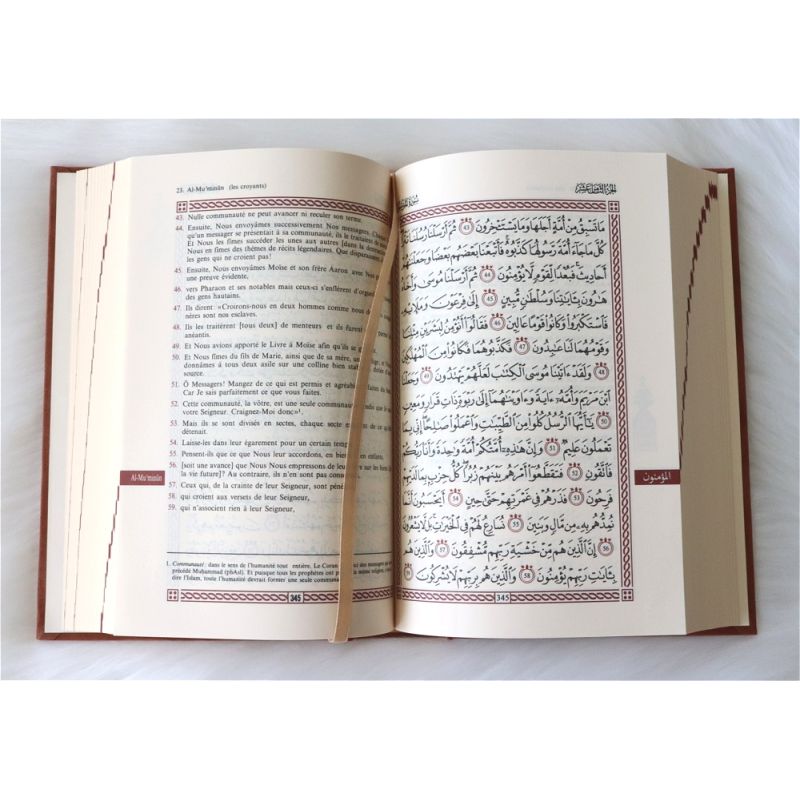 23. Al-Mu'minūn (les croyants)
43. Nulle communauté ne peut avancer ni reculer son terme.
44. Ensuite, Nous envoyâmes successivement Nos messagers. Chaque
qu'un messager se présentait à sa communauté, ils le traitaient de
Et Nous les fîmes succéder les unes aux autres [dans la
Nous en fîmes des thèmes de récits légendaires. Que disparaissent
les gens qui ne croient pas!
45. Ensuite, Nous envoyâmes Moïse et son frère Aaron avec
une preuve évidente,
46. vers Pharaon et ses notables mais ceux-ci s'enflèrent d'orgueil
des gens hautains.
47. Ils dirent: «Croirons-nous en deux hommes comme nous
nères sont nos esclaves.
48. Ils les traitèrent [tous deux] de menteurs et ils furent
49. Et Nous avions apporté le Livre à Moïse afin qu'ils se
50. Et Nous fîmes du fils de Marie, ainsi que de sa mère, un et Nous
donnâmes à tous deux asile sur une colline bien
source.
51. Ô Messagers! Mangez de ce qui est permis et agréable faites du bien.
Car Je sais parfaitement ce que vous faites.
52. Cette communauté, la vôtre, est une seule communauté que Je suis
votre Seigneur. Craignez-Moi donc»¹.
53. Mais ils se sont divisés en sectes, chaque secte de ce qu'elle
détenait.
54. Laisse-les dans leur égarement pour un certain temps
55. Pensent-ils que ce que Nous leur accordons, en biens et en enfants,
56. [soit une avance] que Nous Nous empressons de leur sur les biens
la vie future]? Au contraire, ils n'en sont pas
57. Ceux qui, de la crainte de leur Seigneur, sont
58. qui croient aux versets de leur Seigneur,
59. qui n'associent rien à leur Seigneur,
Al-Mu'minūn
1. Communauté: dans le sens de l'humanité tout entière. Le Coran des messagers qui
précédé Muhammad (pbAsl). Et puisque tous les prophètes ont la même religion, c'est-à-
dire l'Islam, toute l'humanité devrait former une seule
345
الجزء الثامن عشر
مَا تَسْبِقُ مِنْ أُمَّةٍ أَجَلَهَا وَمَا يَسْتَـْٔخِرُونَ ٤٣ ثُمَّ أَرْسَلْنَا رُسُلَنَا
كُلَّ مَا جَآءَ أُمَّةً رَّسُولُهَا كَذَّبُوهُ فَأَتْبَعْنَا بَعْضَهُم بَعْضًا وَجَعَلْنَٰهُمْ
أَحَادِيثَ فَبُعْدًا لِّقَوْمٍ لَّا يُؤْمِنُونَ ٤٤ ثُمَّ أَرْسَلْنَا مُوسَىٰ وَأَخَاهُ
هَٰرُونَ بِـَٔايَٰتِنَا وَسُلْطَٰنٍ مُّبِينٍ ٤٥ إِلَىٰ فِرْعَوْنَ وَمَلَإِيْهِۦ
فَٱسْتَكْبَرُوا۟ وَكَانُوا۟ قَوْمًا عَالِينَ ٤٦ فَقَالُوٓا۟ أَنُؤْمِنُ لِبَشَرَيْنِ مِثْلِنَا
وَقَوْمُهُمَا لَنَا عَٰبِدُونَ ٤٧ فَكَذَّبُوهُمَا فَكَانُوا۟ مِنَ ٱلْمُهْلَكِينَ
٤٨ وَلَقَدْ ءَاتَيْنَا مُوسَى ٱلْكِتَٰبَ لَعَلَّهُمْ يَهْتَدُونَ ٤٩ وَجَعَلْنَا
ٱبْنَ مَرْيَمَ وَأُمَّهُۥٓ ءَايَةً وَءَاوَيْنَٰهُمَآ إِلَىٰ رَبْوَةٍ ذَاتِ قَرَارٍ وَمَعِينٍ
٥٠ يَٰٓأَيُّهَا ٱلرُّسُلُ كُلُوا۟ مِنَ ٱلطَّيِّبَٰتِ وَٱعْمَلُوا۟ صَٰلِحًا إِنِّى بِمَا
تَعْمَلُونَ عَلِيمٌ ٥١ وَإِنَّ هَٰذِهِۦٓ أُمَّتُكُمْ أُمَّةً وَٰحِدَةً وَأَنَا۠ رَبُّكُمْ
فَٱتَّقُونِ ٥٢ فَتَقَطَّعُوٓا۟ أَمْرَهُم بَيْنَهُمْ زُبُرًا كُلُّ حِزْبٍۭ بِمَا لَدَيْهِمْ
فَرِحُونَ ٥٣ فَذَرْهُمْ فِى غَمْرَتِهِمْ حَتَّىٰ حِينٍ ٥٤ أَيَحْسَبُونَ أَنَّمَا
نُمِدُّهُم بِهِۦ مِن مَّالٍ وَبَنِينَ ٥٥ نُسَارِعُ لَهُمْ فِى ٱلْخَيْرَٰتِ بَل لَّا يَشْعُرُونَ
٥٦ إِنَّ ٱلَّذِينَ هُم مِّنْ خَشْيَةِ رَبِّهِم مُّشْفِقُونَ ٥٧ وَٱلَّذِينَ هُم
بِـَٔايَٰتِ رَبِّهِمْ يُؤْمِنُونَ ٥٨ وَٱلَّذِينَ هُم بِرَبِّهِمْ لَا يُشْرِكُونَ ٥٩
المؤمنون
345